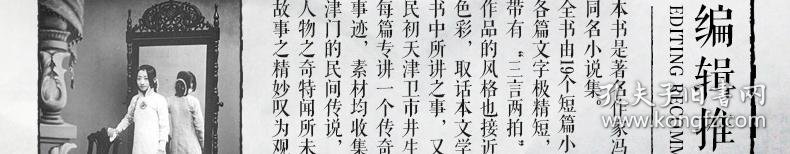 编辑推
EDITING RECOMM
本书是著名作家冯
同名小说集。
全书由19个短篇小
各篇文字极精短，
带有“三言两拍”
作品的风格也接近
色彩，取话本文学
书中所讲之事，又
民初天津卫市井生
每篇专讲一个传奇
事迹，素材均收集
津门的民间传说，
人物之奇特闻所未
故事之精妙叹为观
孔夫子旧书网
www.kongfz.com